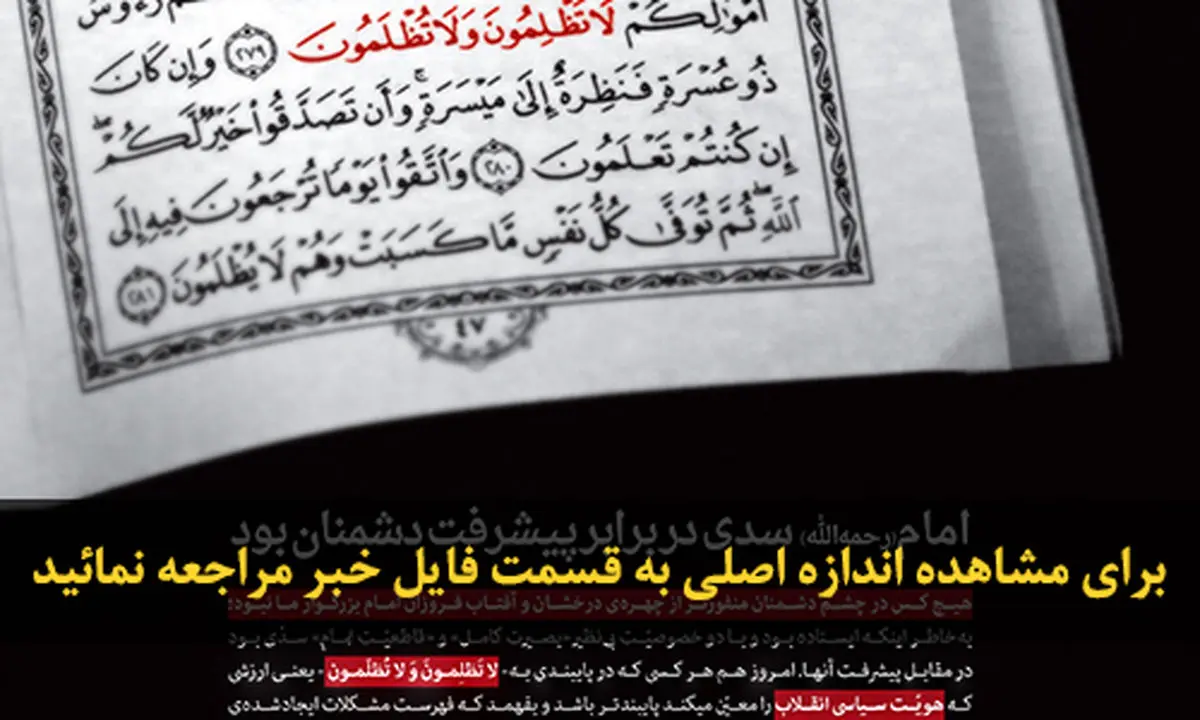 أَمْوَٰلِكُمْ لَا تَظْلِمُونَ وَلَا تُظْلَمُونَ ﴿٢٧٩﴾ وَإِن كَانَ
ذُو عُسْرَةٍ فَنَظِرَةٌ إِلَىٰ مَيْسَرَةٍ ۚ وَأَن تَصَدَّقُوا۟ خَيْرٌ لَّكُمْ ۖ
إِن كُنتُمْ تَعْلَمُونَ ﴿٢٨٠﴾ وَٱتَّقُوا۟ يَوْمًا تُرْجَعُونَ فِيهِ إِلَى
ٱللَّهِ ۖ ثُمَّ تُوَفَّىٰ كُلُّ نَفْسٍ مَّا كَسَبَتْ وَهُمْ لَا يُظْلَمُونَ ﴿٢٨١﴾
٤٧
امام (رحمه‌الله) سدی در برابر پیشرفت دشمنان بود
برای مشاهده اندازه اصلی به قسمت فایل خبر مراجعه نمائید
هیچ کس در چشم دشمنان منفورتر از چهره‌ی درخشان و آفتاب فروزان امام بزرگوار ما نبود؛
به خاطر اینکه ایستاده بود و با دو خصوصیّت بی‌نظیر «بصیرت کامل» و «قاطعیّت تمام» سدّی بود
در مقابل پیشرفت آنها. امروز هم هر کسی که در پایبندی به «لا تَظلِمونَ وَ لا تُظلَمون» - یعنی ارزشی
که هویّت سیاسی انقلاب را معیّن میکند پایبندتر باشد و بفهمد که فهرست مشکلات ایجادشده‌ی